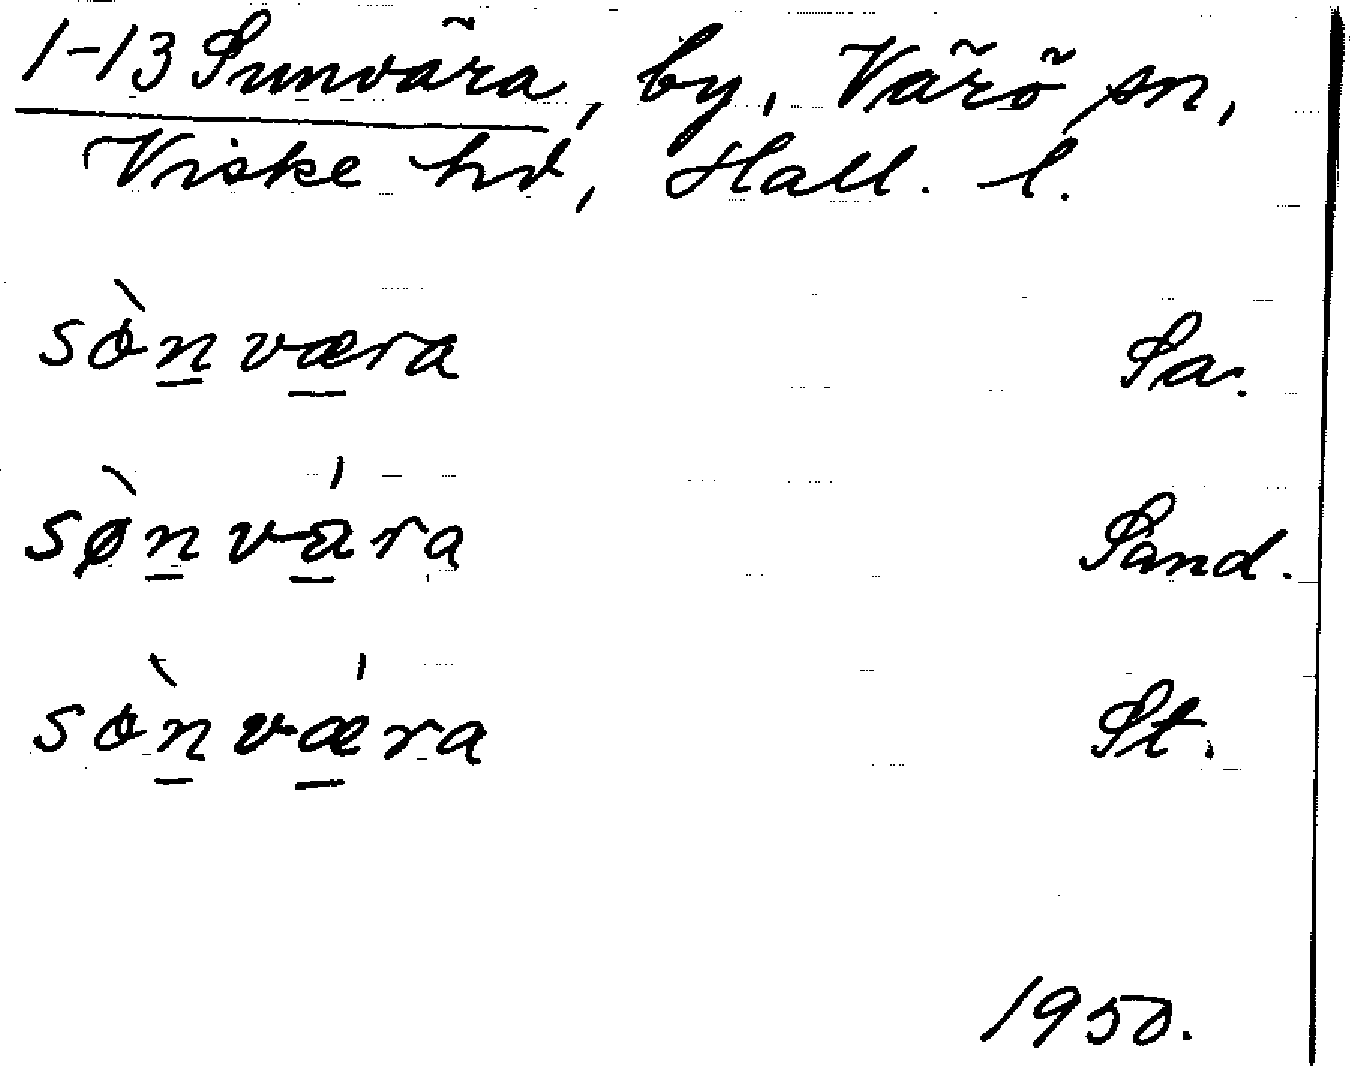 1-13 Sunvära, by, Värö sn,
Viske hd, Hall. l.
sònværa Sa.
sønvára Sand.
sònvǽra St.
1950.